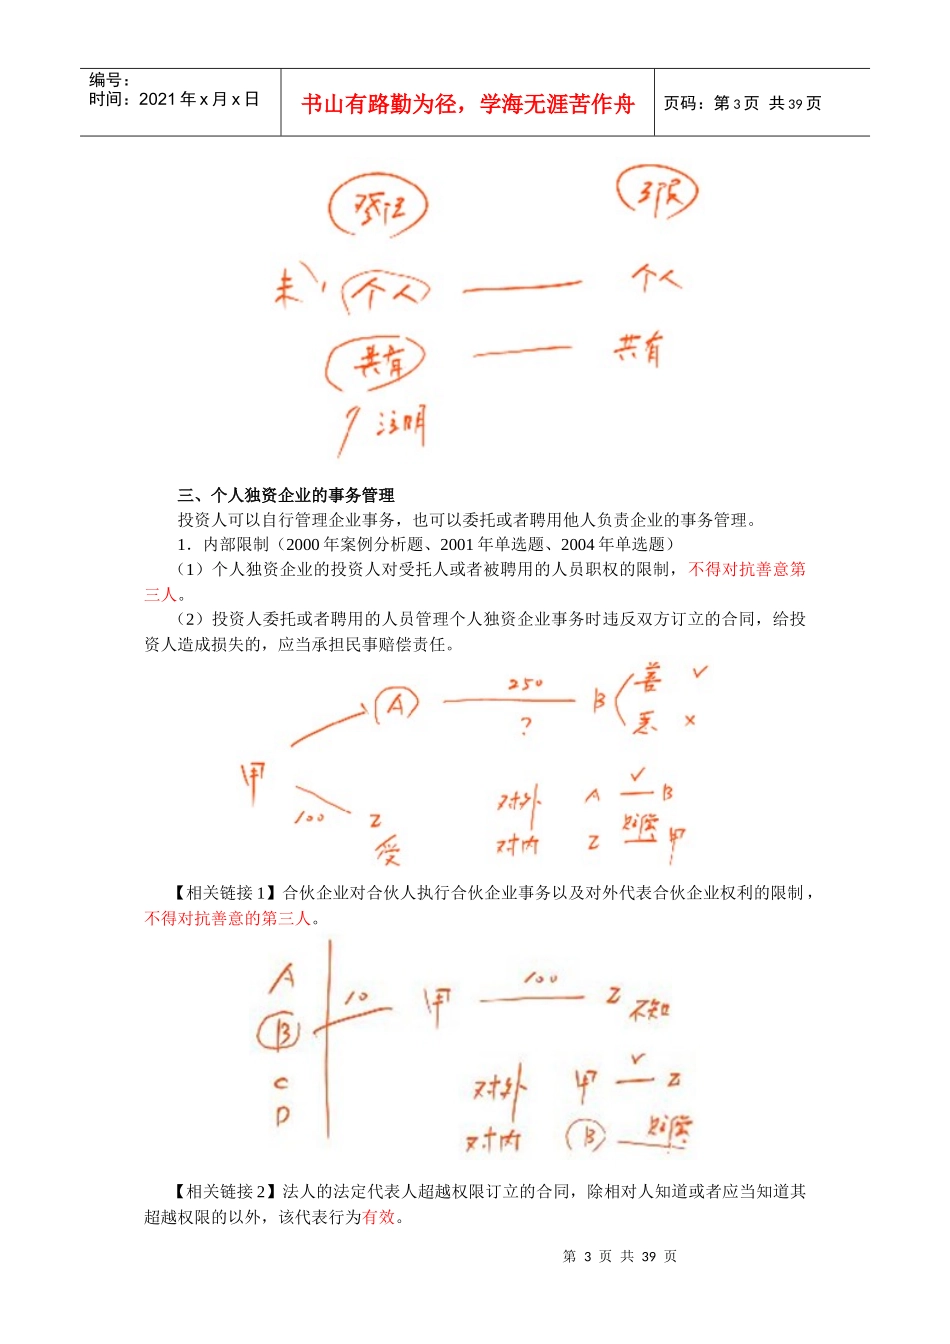 编号：
时间：2021年x月x日
书山有路勤为径，学海无涯苦作舟
页码：第3页 共39页
登记
未 个人 —— 个人
共有 —— 共有
注明
三、个人独资企业的事务管理
投资人可以自行管理企业事务，也可以委托或者聘用他人负责企业的事务管理。
1．内部限制（2000年案例分析题、2001年单选题、2004年单选题）
（1）个人独资企业的投资人对受托人或者被聘用的人员职权的限制，不得对抗善意第
三人。
（2）投资人委托或者聘用的人员管理个人独资企业事务时违反双方订立的合同，给投
资人造成损失的，应当承担民事赔偿责任。
A 250 ? B 善 √
恶 ×
甲
100 Z 受
对外 A √ B
对内 Z 赔偿 甲
【相关链接1】合伙企业对合伙人执行合伙企业事务以及对外代表合伙企业权利的限制，
不得对抗善意的第三人。
A
B 10 甲 100 Z 不知
C
D
对外 甲 √ Z
对内 B 赔偿
【相关链接2】法人的法定代表人超越权限订立的合同，除相对人知道或者应当知道其
超越权限的以外，该代表行为有效。
第 3 页 共 39 页